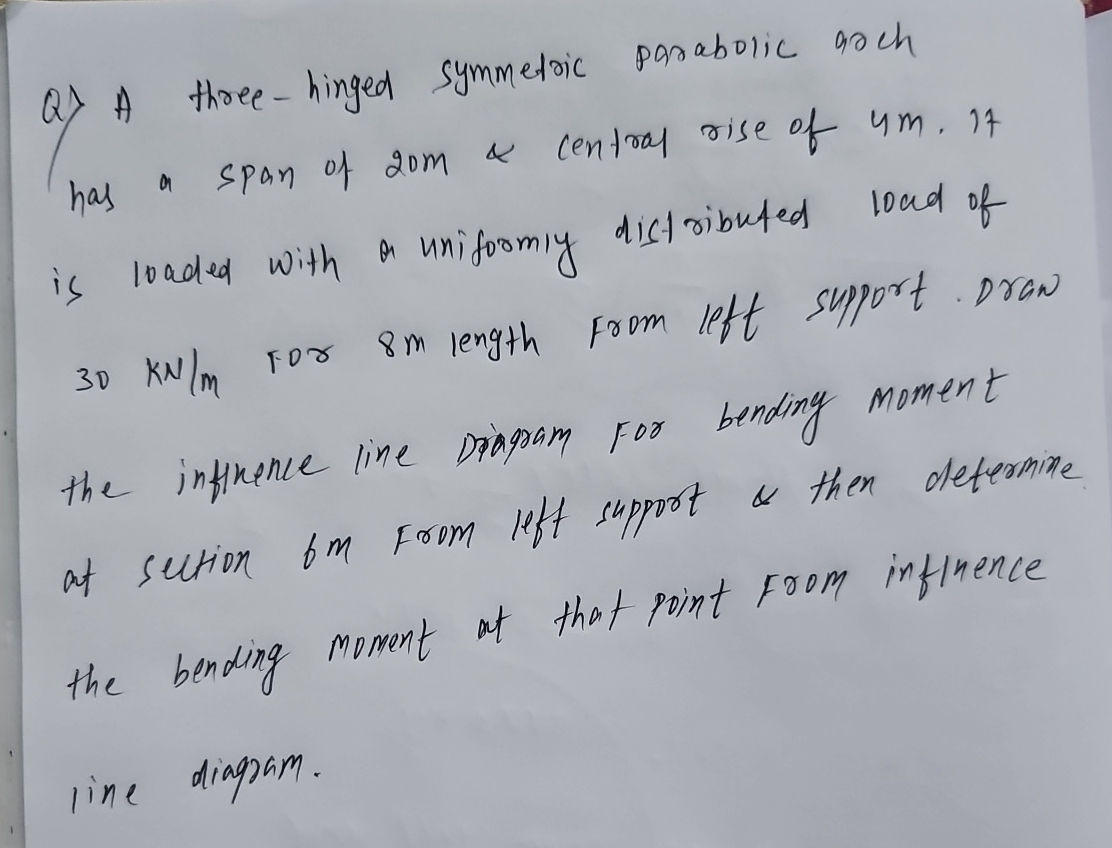 Q) A three-hinged symmetric parabolic arch
has a span of 20m & central rise of 4m. It
is loaded with a uniformly distributed load of
30 KN/m For 8m length From left support. Draw
the influence line Diagram For bending moment
at section 6m From left support & then determine
the bending moment at that point From influence
line diagram.